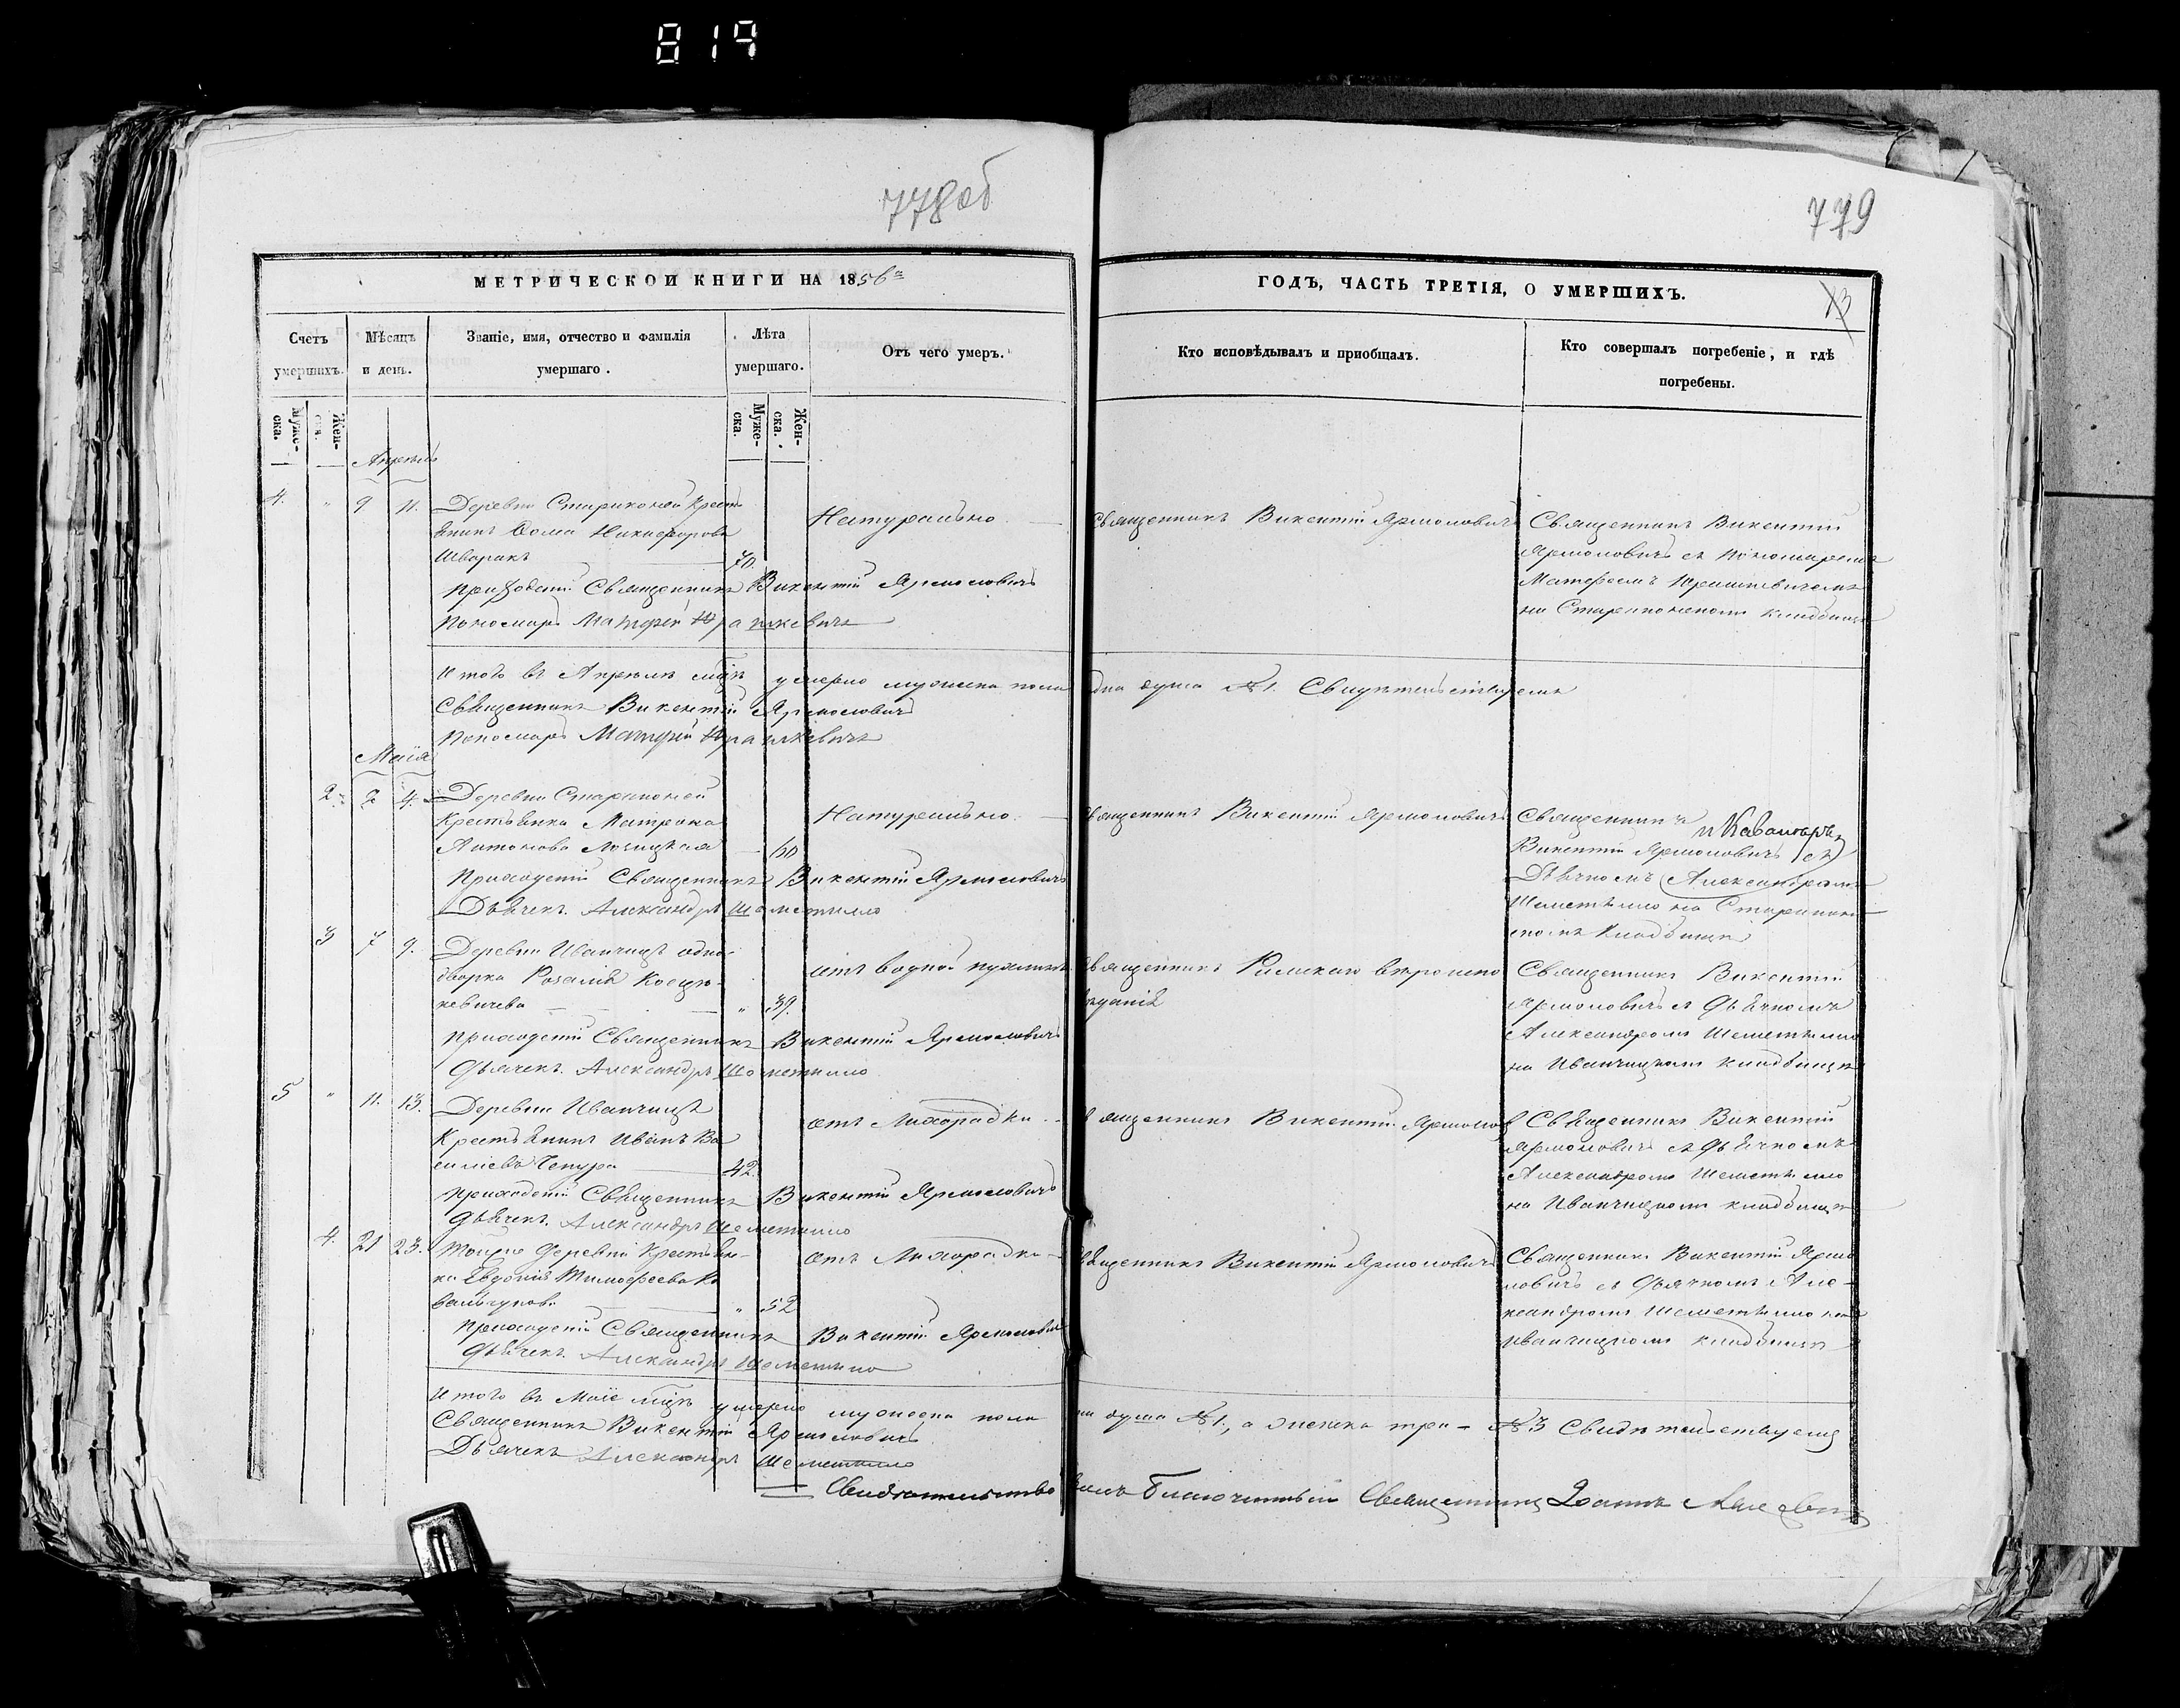 819
778об
779
МЕТРИЧЕСКОЙ КНИГИ НА 1856й
ГОДЪ, ЧАСТЬ ТРЕТІЯ, О УМЕРШИХЪ.
13
Счетъ умершихъ.
Мѣсяцъ и день.
Званіе, имя, отчество и фамилія умершаго.
Лѣта умершаго.
Отъ чего умеръ.
Кто исповѣдывалъ и пріобщалъ.
Кто совершалъ погребеніе, и гдѣ погребены.
Муже-ска.
Жен-ска.
Муже-ска.
Жен-ска.
Апрѣль
4. " 9 11. Деревни Старинокъ Кресть
янинъ Ѳома Никифоровъ
Шваракъ 70.
Натурально
Священникъ Викентій Ярмоловичъ
Священникъ Викентій
Ярмоловичъ съ Пономаремъ
Матфеемъ
на кладбищѣ
Приходскій Священникъ Викентій Ярмоловичъ
Пономарь Матфей
Итого въ Апрѣлѣ мцѣ умерло мужеска пола одна душа №1. Свидѣтельствуемъ
Священникъ Викентій Ярмоловичъ
Пономарь Матфей
Маія
2. 2 4. Деревни Старинокъ
Крестьянка Матрона
Антонова Лозицкая 60
Натурально.
Священникъ Викентій Ярмоловичъ
Священникъ и Кавалеръ
Викентій Ярмоловичъ съ
Дьячкомъ Александромъ
Шеметилло на
кладбищѣ
Приходскій Священникъ Викентій Ярмоловичъ
Дьячекъ Александръ Шеметилло
3 7 9. Деревни Иванчицъ одно-
дворка Розалія Косцю-
кевичева " 39.
отъ водной пухлины
Священникъ Римскаго вѣроиспо
вѣданія
Священникъ Викентій
Ярмоловичъ съ Дьячкомъ
Александромъ Шеметилло
на Иванчицкомъ кладбищѣ
Приходскій Священникъ Викентій Ярмоловичъ
Дьячекъ Александръ Шеметилло
5 " 11. 13. Деревни Иванчицъ
Крестьянинъ Иванъ Ва
силіевъ Чепура 42.
отъ Лихорадки
Священникъ Викентій Ярмолов
Священникъ Викентій
Ярмоловичъ съ Дьячкомъ
Александромъ Шеметилло
на Иванчицкомъ кладбищѣ
Приходскій Священникъ Викентій Ярмоловичъ
Дьячекъ Александръ Шеметилло
4. 21 23. Тойже деревни Крестьян-
ка Евдокія Тимофеева Ко
" 52
отъ Лихорадки
Священникъ Викентій Ярмоловичъ
Священникъ Викентій Ярмо
ловичъ съ Дьячкомъ Але-
ксандромъ Шеметилло на
Иванчицкомъ кладбищѣ
Приходскій Священникъ Викентій Ярмоловичъ
Дьячекъ Александръ Шеметилло
Итого въ Маіе мцѣ умерло мужеска пола одна душа №1., а женска три №3 Свидѣтельствуемъ
Священникъ Викентій Ярмоловичъ
Дьячекъ Александръ Шеметилло
Свидѣтельствовалъ Благочинный Священникъ Іоаннъ